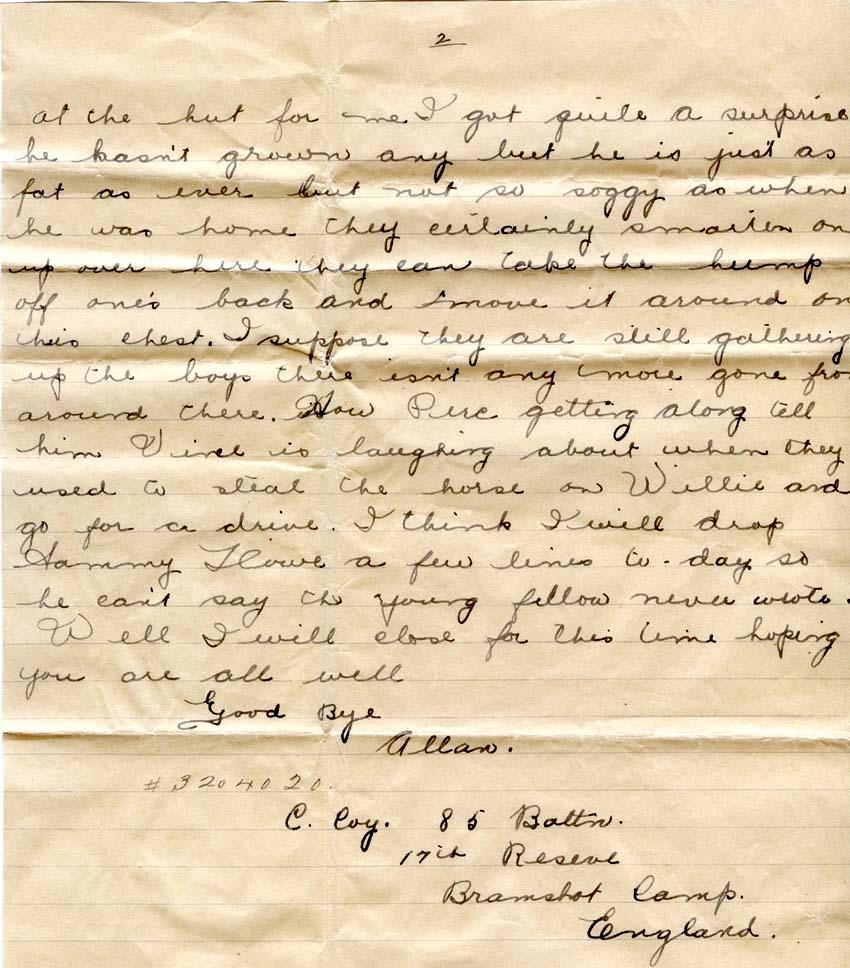 2
at the hut for me I got quite a surprise
he hasn't grown any but he is just as
fat as ever but not so soggy as when
he was home they certainly smarten on
up over here they can take the hump
off one's back and move it around on
this chest. I suppose they are still gathering
up the boys there isn't any more gone fro
around there. How Perc getting along tell
him Vine is laughing about when they
used to steal the horse on Willie and
go for a drive. I think I will drop
Hammy a few lines to-day so
he can't say the young fellow never wrote.
Well I will close for this time hoping
you are all well
Good Bye
Allan.
#3204020.
C. Coy. 85 Battn.
17th Reseve
Bramshot Camp.
England.